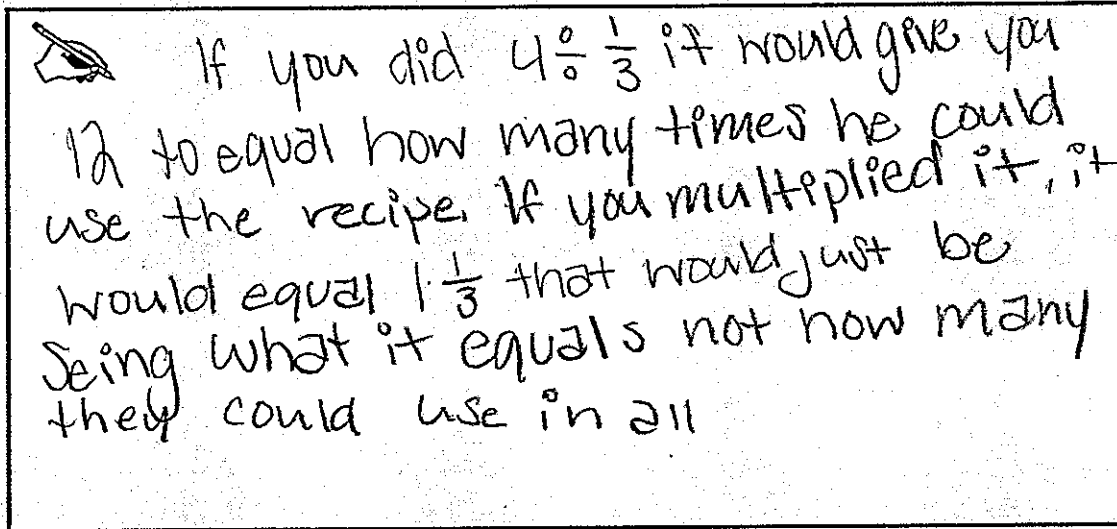 If you did 4 ÷ 1/3 it would give you
12 to equal how many times he could
use the recipe. If you multiplied it, it
would equal 1 1/3 that would just be
Seing what it equals not how many
they could use in all